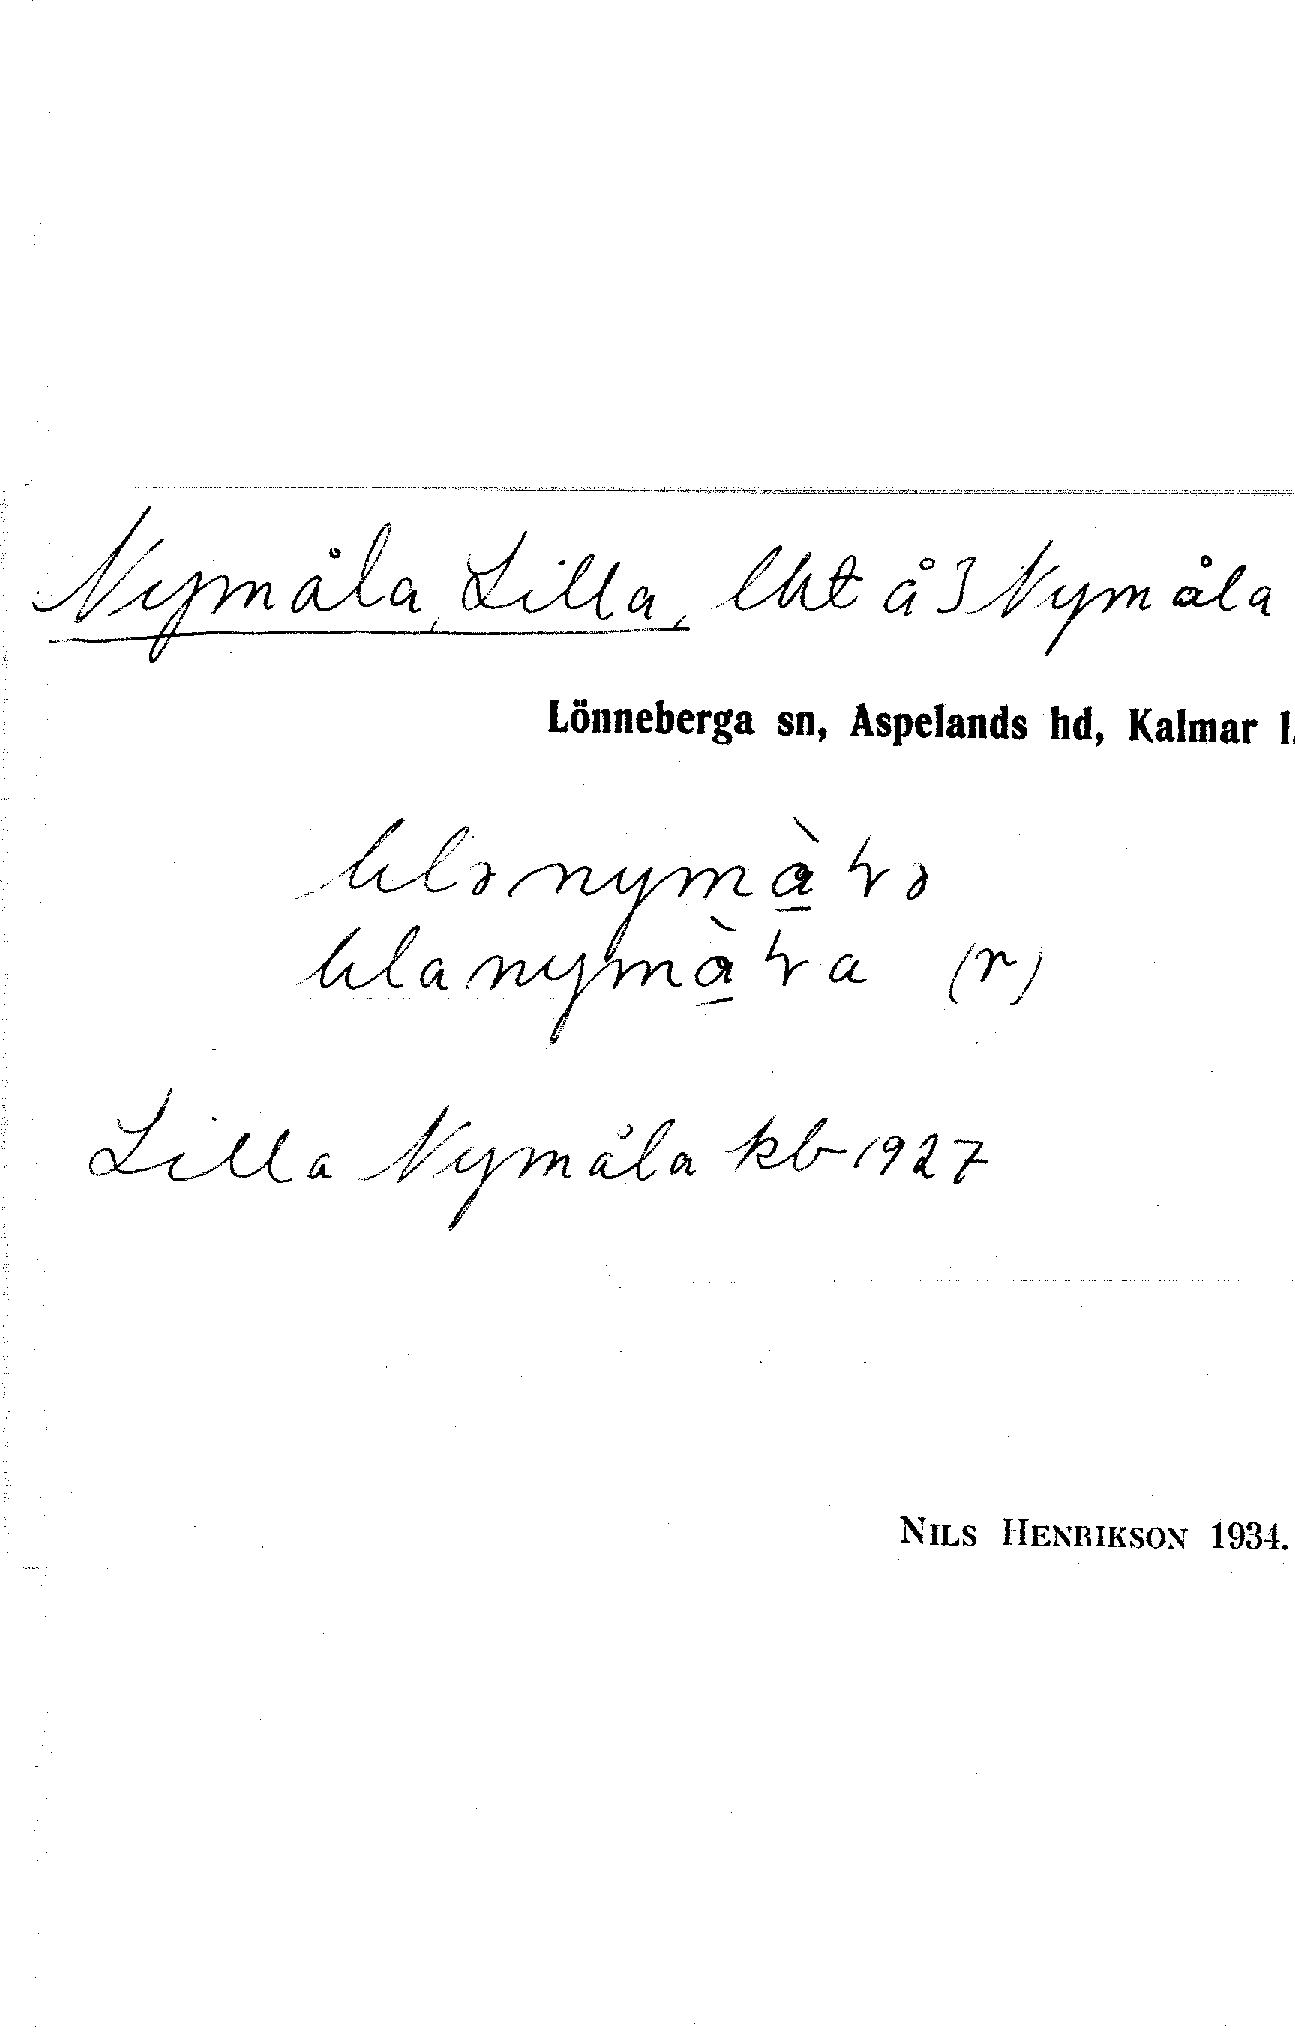 Nymåla, Lilla, lht å 3 Nymåla
Lönneberga sn, Aspelands hd, Kalmar l.
(r)
Lilla Nymåla kb 1927
NILS HENRIKSON 1934.